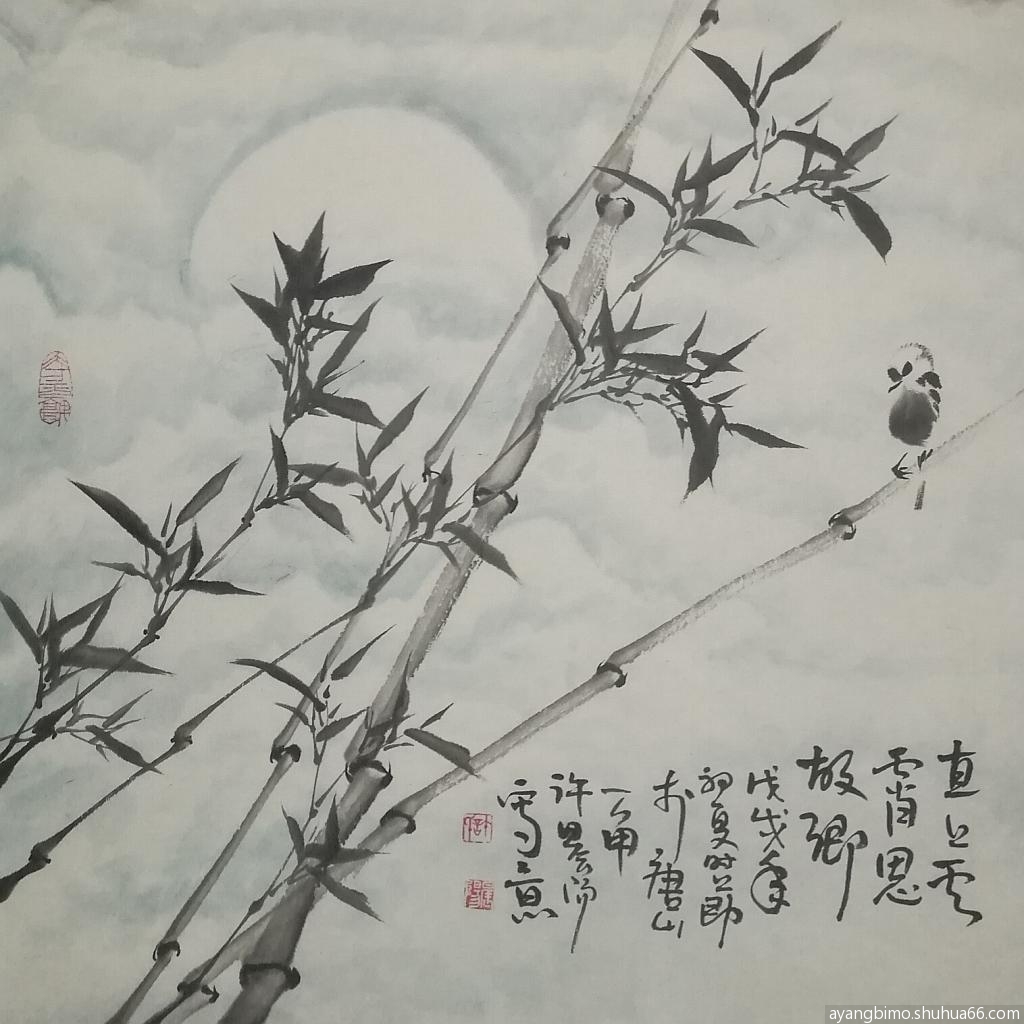 直上云
霄思
故乡
戊戌年
初夏时节
于唐山
一甲
许昌阳
写意
ayangbimo.shuhua66.com